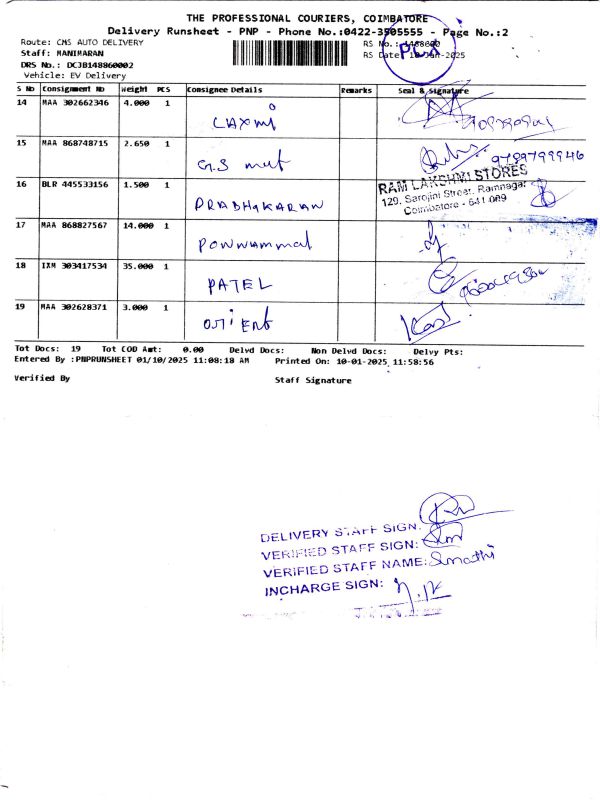 THE PROFESSIONAL COURIERS, COIMBATORE
Delivery Runsheet - PNP - Phone No.:0422-3505555 - Page No.:2
Route: CMS AUTO DELIVERY
RS No.: 1488600
Staff: MANIMARAN
RS Date: 10-Jan-2025
DRS No.: DCJB148860002
Vehicle: EV Delivery
S No Consignment No Weight PCS Consignee Details Remarks Seal & signature
14 MAA 302662346 4.000 1
Laxmi
15 MAA 868748715 2.650 1
G.S mut 9789799946
16 BLR 445533156 1.500 1
PRABHAKARAN
RAM LAKSHMI STORES
129, Sarojini Street, Ramnagar
Coimbatore - 641 009
17 MAA 868827567 14.000 1
Ponnammal
18 IXM 303417534 35.000 1
PATEL
19 MAA 302628371 3.000 1
Orient
Tot Docs: 19 Tot COD Amt: 0.00 Delvd Docs: Non Delvd Docs: Delvy Pts:
Entered By :PNPRUNSHEET 01/10/2025 11:08:18 AM Printed On: 10-01-2025 11:58:56
Verified By Staff Signature
DELIVERY STAFF SIGN:
VERIFIED STAFF SIGN:
VERIFIED STAFF NAME: Sumathi
INCHARGE SIGN: